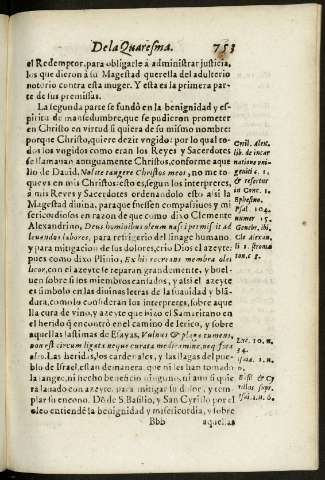 De la Quaresma. 753
el Redemptor, para obligarle à administrar justicia,
los que dieron à su Magestad querella del adulterio
notorio contra esta muger. Y esta es la primera par-
te de sus premissas.
La segunda parte se fundò en la benignidad y es-
piritu de mansedumbre, que se pudieron prometer
en Christo en virtud si quiera de su mismo nombre:
porque Christo, quiere dezir vngido: por lo qual to-
dos los vngidos como eran los Reyes y Sacerdotes
se llamauan antiguamente Christos, conforme aque
llo de Dauid, Nolite tangere Christos meos, no me to-
queys en mis Christos: esto es, segun los interpretes,
à mis Reyes y Sacerdotes ordenando esto assi la
Magestad diuina, para que fuessen compassiuos y mi
sericordiosos en razon de que como dixo Clemente
Alexandrino, Deus hominibus oleum nasci permisit ad
leuandos labores, para refrigerio del linage humano
y para mitigacion de sus dolores, crio Dios el azeyte:
pues como dixo Plinio, Ex his recreans membra olei
liquor, con el azeyte se reparan grandemente, y buel-
uen sobre si los miembros cansados, y assi el azeyte
es simbolo en las diuinas letras de la suauidad y blã-
dura, como lo consideran los interpretes, sobre aque
lla cura de vino, y azeyte que hizo el Samaritano en
el herido q̃ encontrò en el camino de Ierico, y sobre
aquellas lastimas de Esayas, Vulnus & plaga tumens,
non est circum ligata neque curata medicamine, neq; fota
oleo. Las heridas, los cardenales, y las llagas del pue-
blo de Israel, estan de manera, que ni les han tomado
la sangre, ni hecho beneficio ninguno, ni aun si quie
ra lauado con azeyte, para mitigar su dolor, y tem-
plar su encono. Dõde S. Basilio, y San Cyrilo por el
oleo entiende la benignidad y misericordia, y sobre
Bbb aquellas
Ciril. Alex.
lib. de incar
natione vni-
geniti c. 1.
& refertur
in Conc. 1.
Ephesino.
Psal. 104.
numer. 15.
Genebr. ibi,
Cle. Alexan.
li 1. stroma
ton. c. 8.
Luc. 10. n.
34.
Isai. 1. n.
6.
Basil. & Cy
rillus supr.
Isai. 1. n. 6.